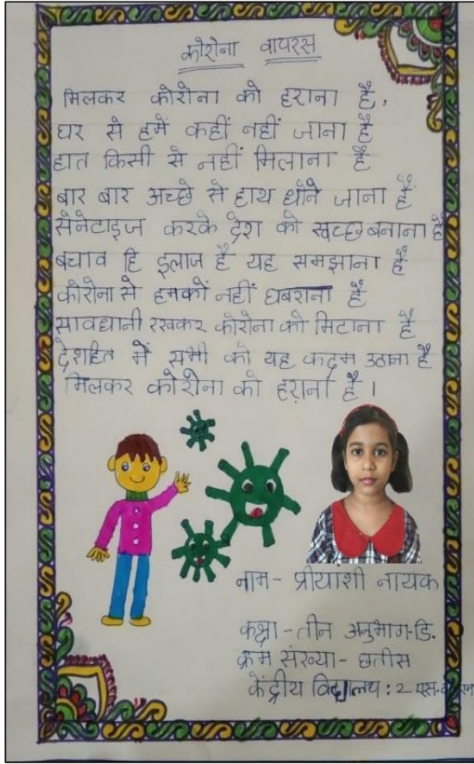 कोरोना वायरस
मिलकर कोरोना को हराना है,
घर से हमें कहीं नहीं जाना है
हात किसी से नहीं मिलाना है
बार बार अच्छे से हाथ धोने जाना है
सेनेटाइज करके देश को स्वच्छ बनाना है
बचाव हि इलाज है यह समझाना है
कोरोना से हमकों नहीं घबराना है
सावधानी रखकर कोरोना को मिटाना है
देशहित में सभी को यह कदम उठाना है
मिलकर कोरोना को हराना है।
नाम - प्रीयांशी नायक
कक्षा - तीन अनुभाग-डि.
क्रम संख्या - छतीस
केंद्रीय विद्यालय : 2